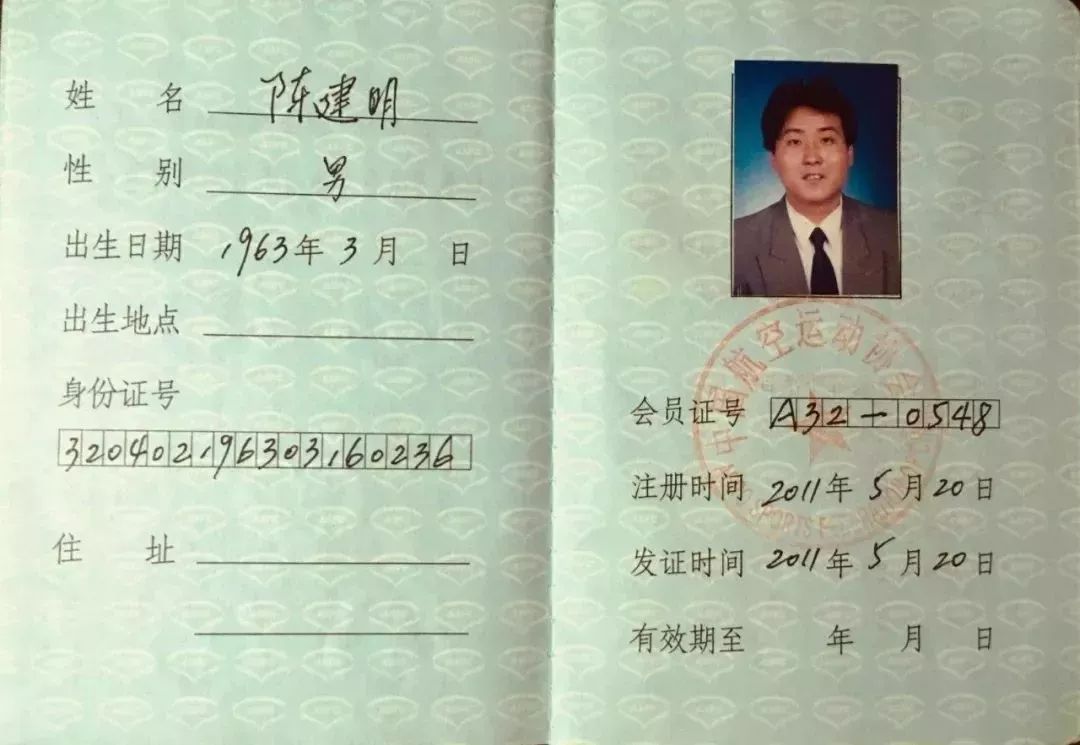 姓 名 陈建明
性 别 男
出生日期 1963年3月 日
出生地点
身份证号
320402196303160236
住 址
中国航空运动协会
会员证号 A32-0548
注册时间 2011年5月20日
发证时间 2011年5月20日
有效期至 年 月 日